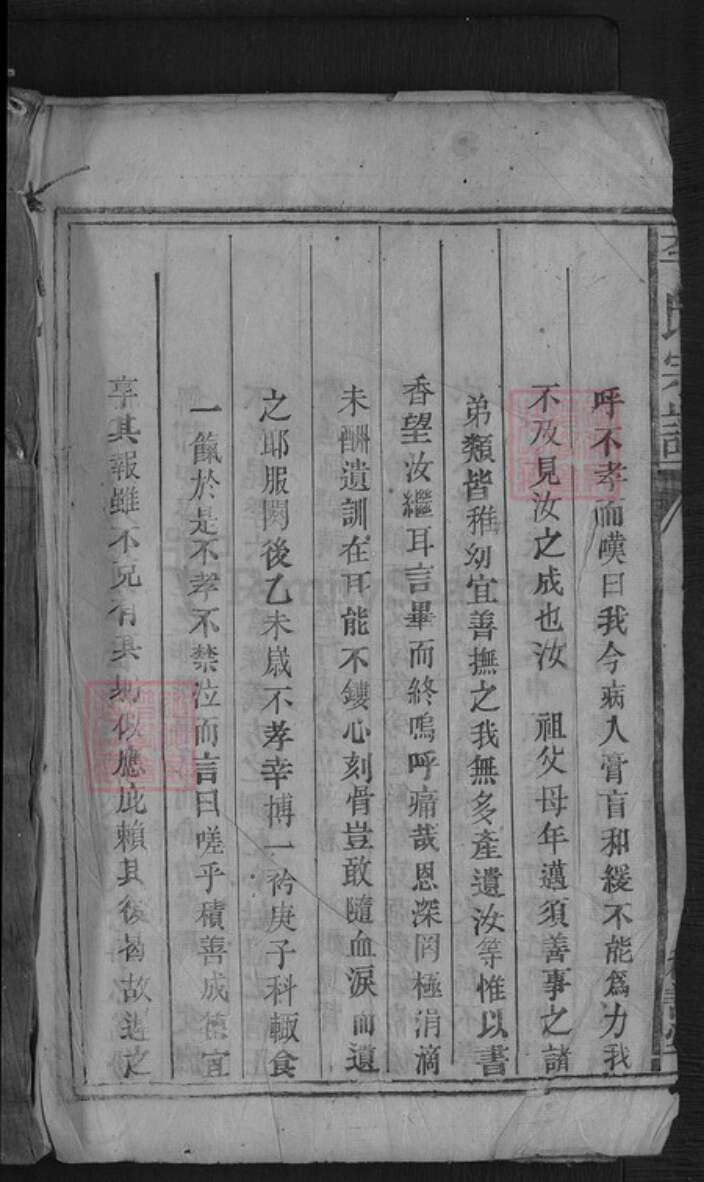 呼不孝而嘆曰我今病入膏肓和緩不能爲力我
不及見汝之成也汝 祖父母年邁須善事之諸
弟類皆稚幼宜善撫之我無多產遺汝等惟以書
香望汝繼耳言畢而終嗚呼痛哉恩深罔極涓滴
未酬遺訓在耳能不鏤心刻骨豈敢隨血淚而遺
之耶服闋後乙未歲不孝幸搏一衿庚子科輙食
一餼於是不孝不禁泣而言曰嗟乎積善成德宜
享其報雖不克有其躬似應庇賴其後曷故逝之
李氏宗譜